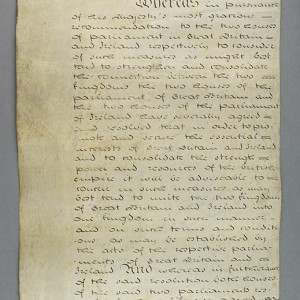 Whereas in pursuance
of his Majesty's most gracious
recommendation to the two houses
of parliament in Great Britain
and Ireland respectively to consider
of such measures as might best
tend to strengthen and consolidate
the connection between the two
kingdoms the two houses of the
parliament of Great Britain and
the two houses of the parliament
of Ireland have severally agreed
and resolved that in order to pro
mote and secure the essential
interests of Great Britain and Ireland
and to consolidate the strength
power and resources of the British
empire it will be adviseable to
concur in such measures as may
best tend to unite the two kingdoms
of Great Britain and Ireland into
one kingdom in such manner
and on such terms and conditi
ons as may be established by
the acts of the respective parlia
ments of Great Britain and
Ireland And whereas in furtherance
of the said resolution both houses
of the said two parliaments res